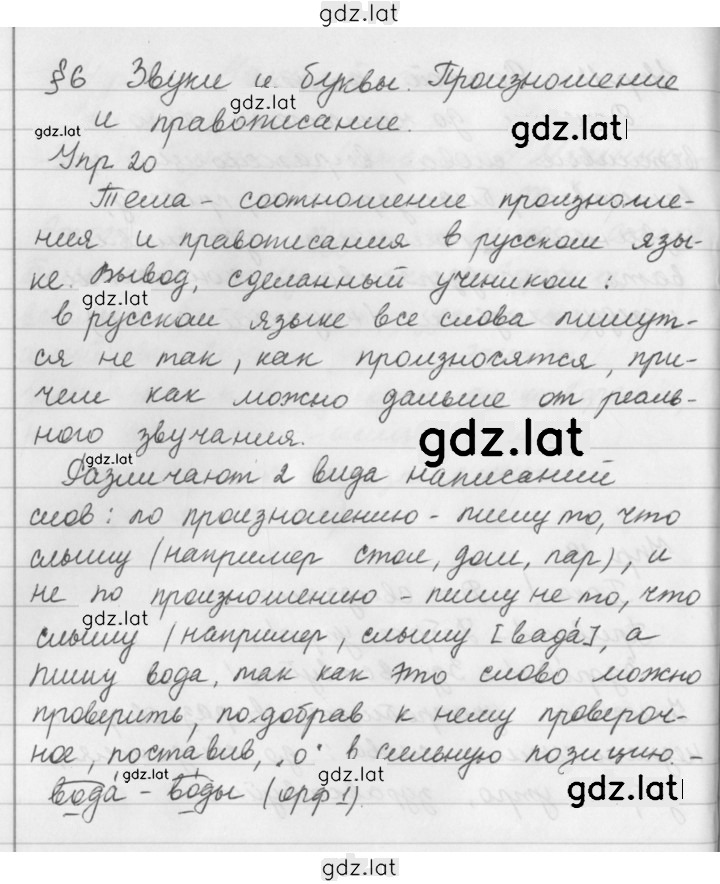 gdz.lat
§6 Звуки и буквы. Произношение
gdz.lat
gdz.lat
и правописание.
gdz.lat
Упр 20
Тема - соотношение произноше-
ния и правописания в русском язы-
ке. Вывод, сделанный учеником:
gdz.lat
в русском языке все слова пишут-
ся не так, как произносятся, при-
чем как можно дальше от реаль-
ного звучания.
gdz.lat
gdz.lat
Различают 2 вида написаний
слов: по произношению - пишу то, что
слышу (например стол, дом, пар), и
не по произношению - пишу не то, что
gdz.lat
слышу (например, слышу [вада́], а
пишу вода, так как это слово можно
проверить, подобрав к нему провероч-
ное, поставив „о" в сильную позицию -
gdz.lat
gdz.lat
вода́ - во́ды (орф 1).
gdz.lat
gdz.lat